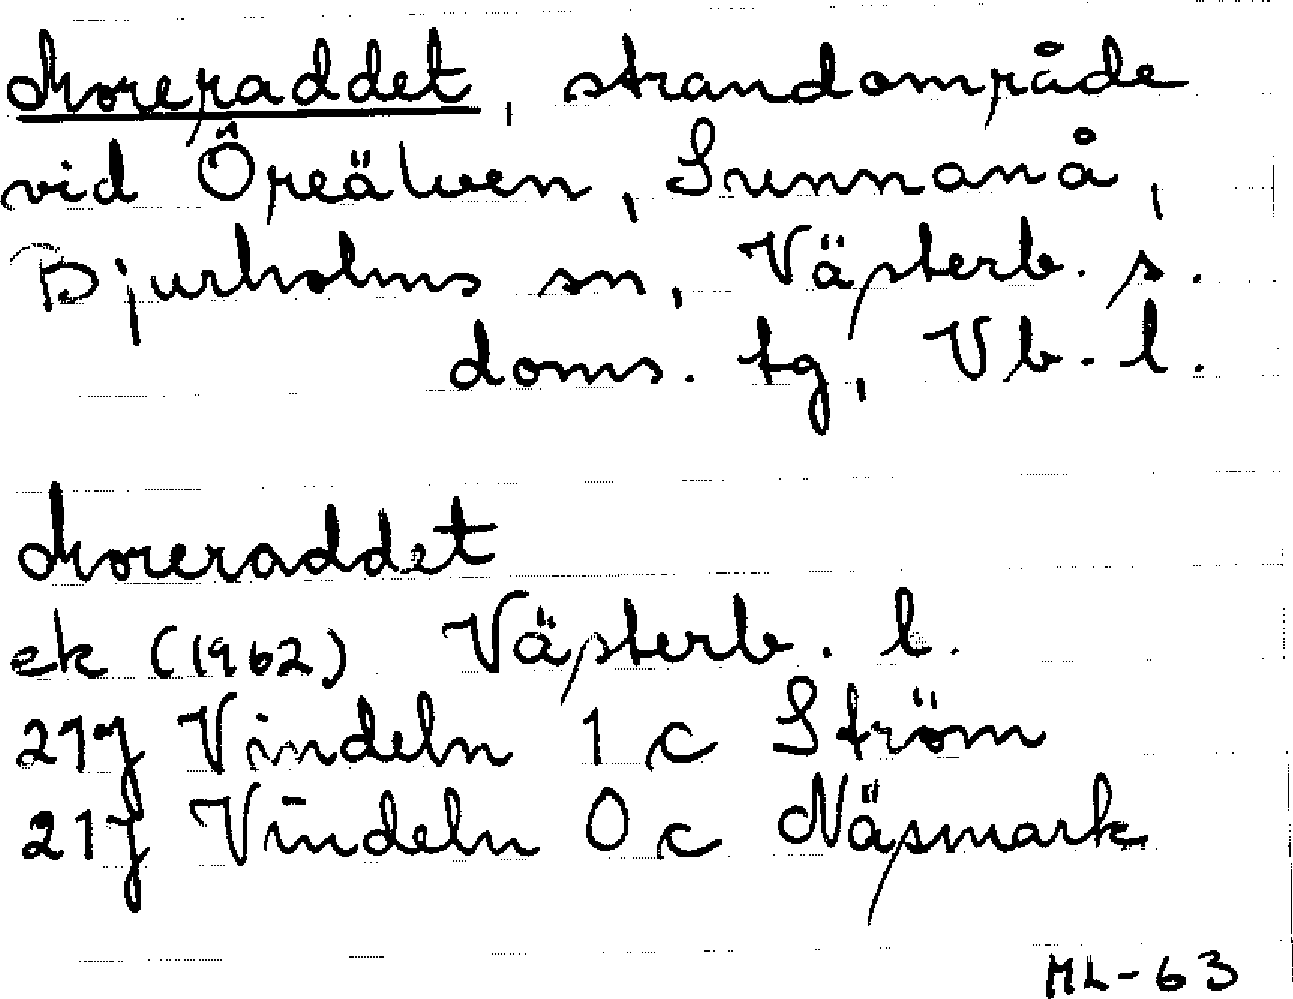 Moreraddet, strandområde
vid Öreälven, Sunnanå,
Bjurholms sn, Västerb. s.
doms. tg, Vb. l.
Moreraddet
ek (1962) Västerb. l.
21J Vindeln 1 c Ström
21J Vindeln 0 c Näsmark
ML-63